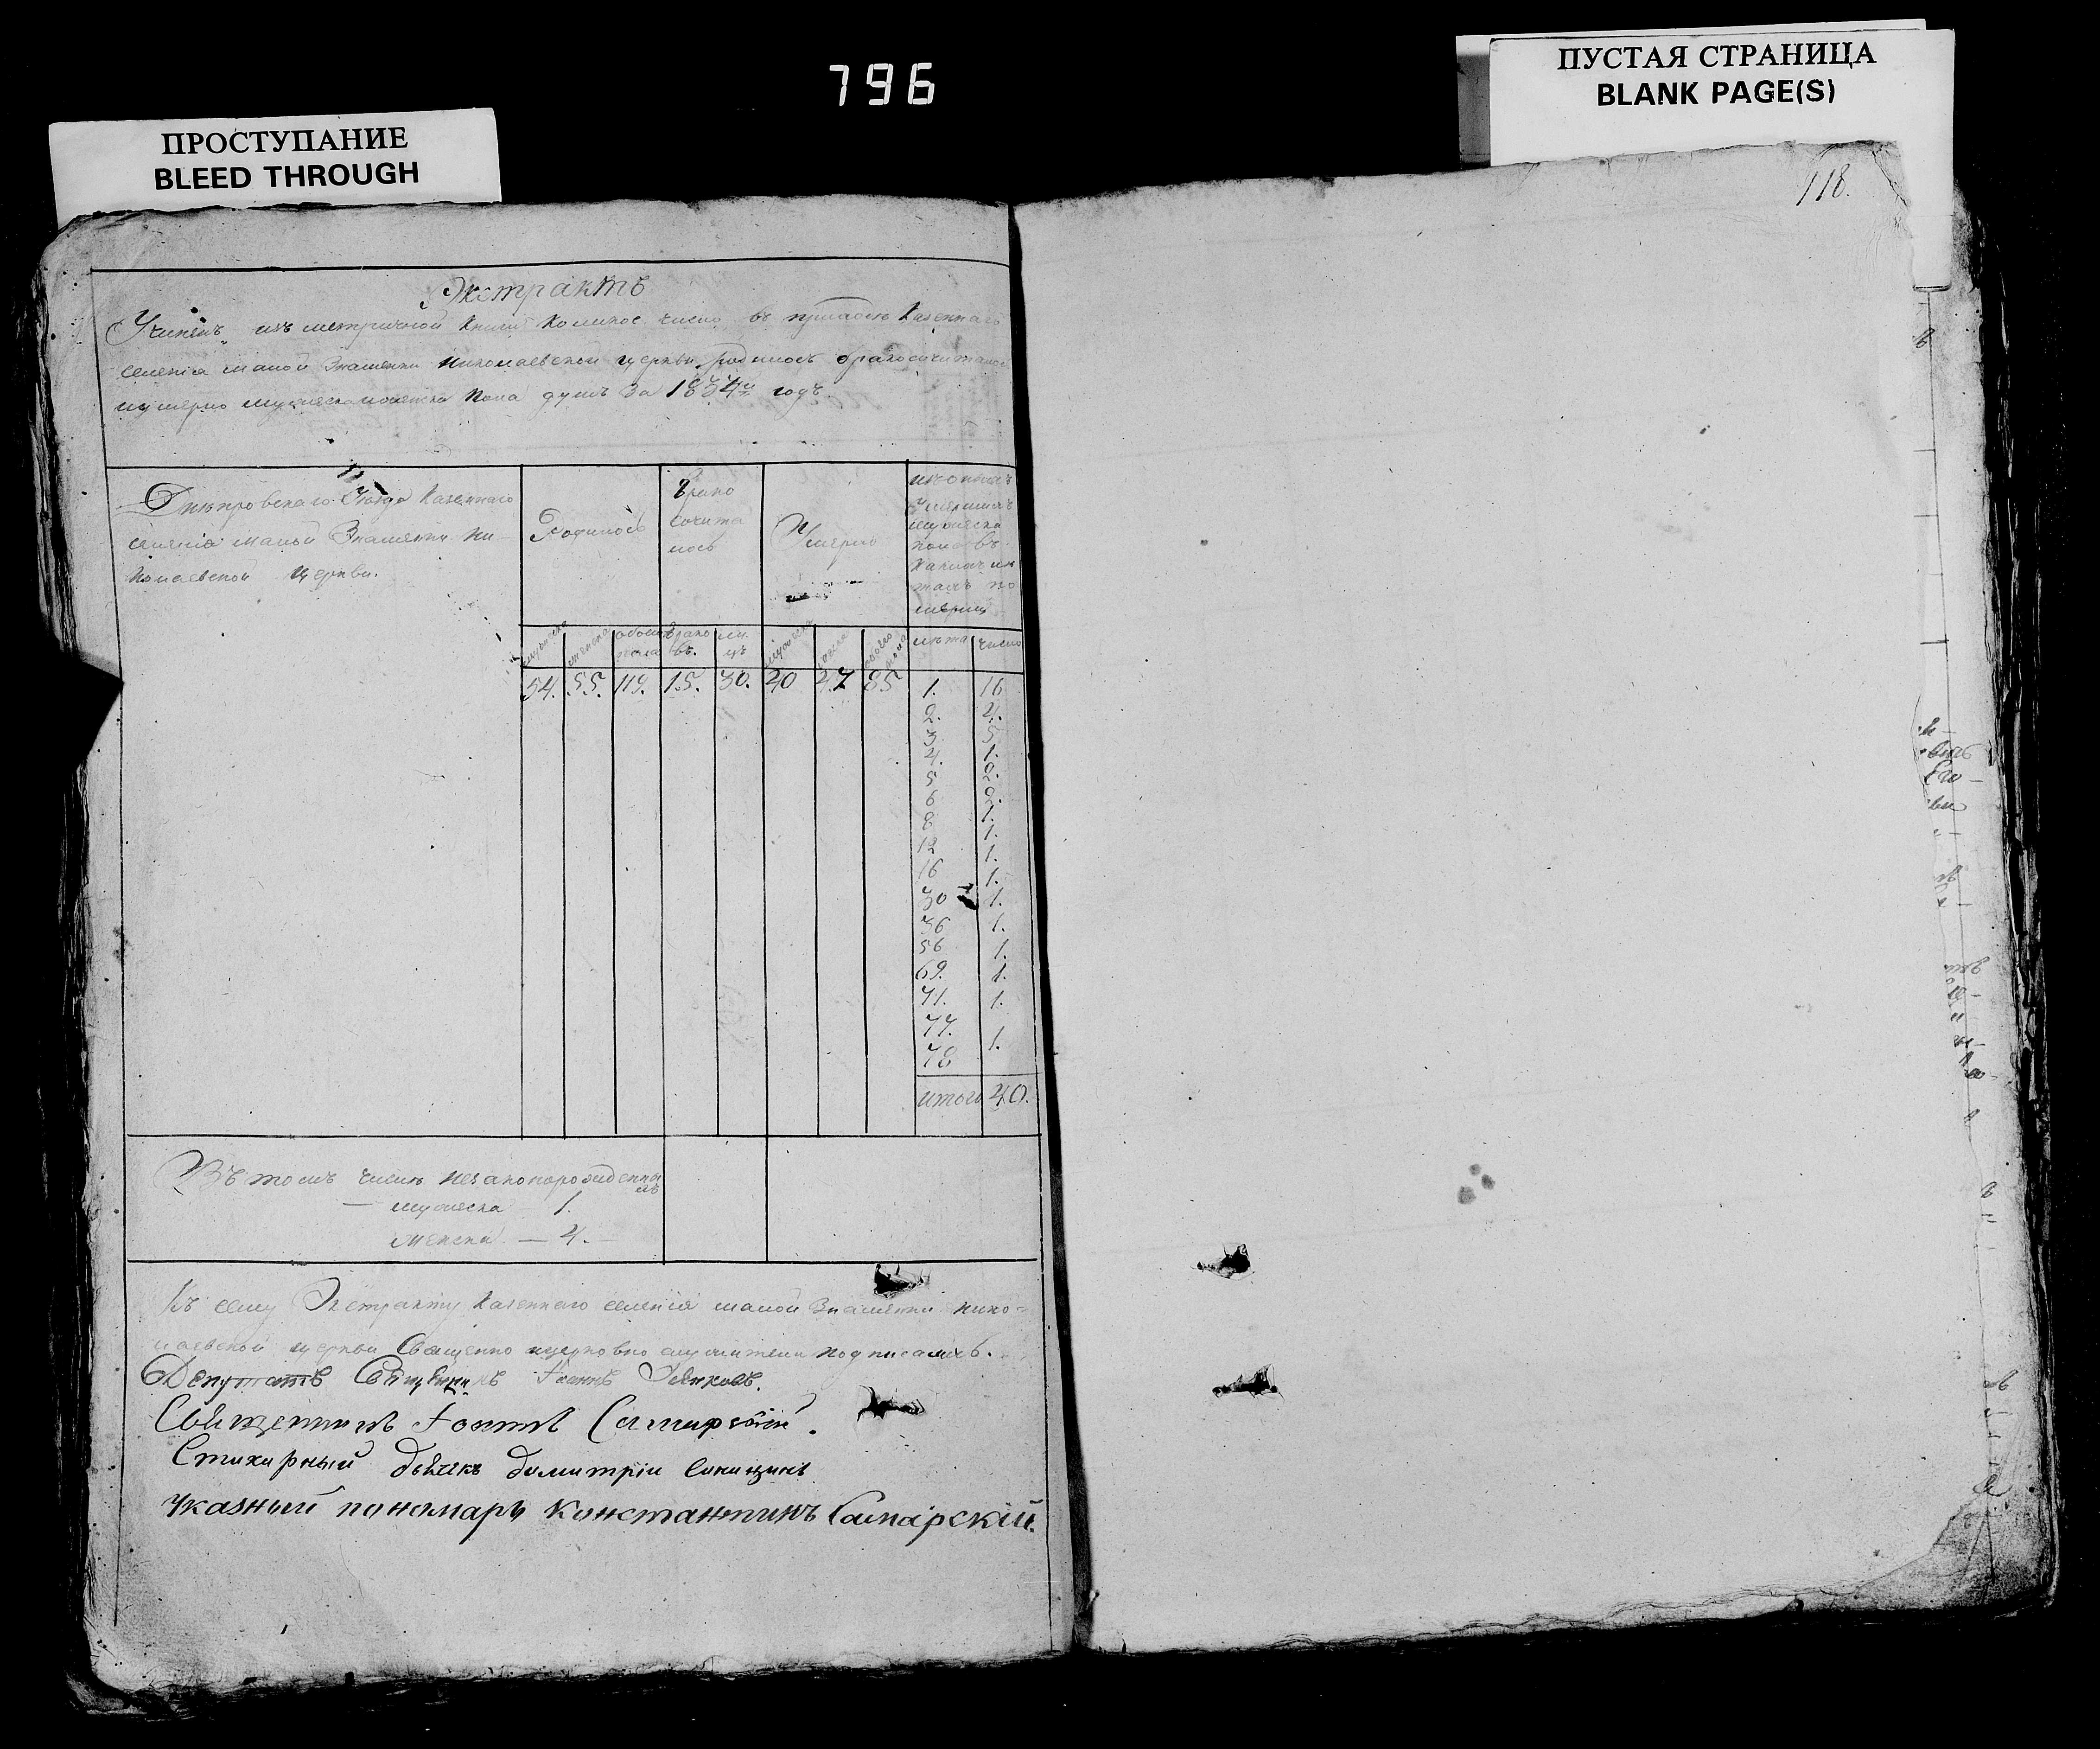 796
ПРОСТУПАНИЕ
BLEED THROUGH
ПУСТАЯ СТРАНИЦА
BLANK PAGE(S)
118.
Экстрактъ
Учиненъ изъ метричной книги Коликое число въ приходѣ Казеннаго
селенія малой Знаменки Николаевской церкви родилось бракосочиталось
и умерло мужеска и женска пола душъ За 1834й годъ.
Днѣпровскаго Уезда Казеннаго
селенія малой Знаменки Ни-
колаевской Церкви.
Родилось
Брако
сочита
лось
Умерло
изъ оныхъ
Умершихъ
мужеска
пола въ
Какихъ лѣ
тахъ по
мерли
мужеска
женска
обоего
пола
Брако
въ.
ли
цъ
мужеска
женска
обоего
пола
лѣта
число
54. 55. 119. 15. 30. 40 85
1. 16
2. 4.
3 5
4. 1.
5 2.
6 2.
8 1.
12 1.
16 1.
30 1.
36 1.
56 1.
69. 1.
71. 1.
77. 1.
78 1.
итого 40.
Въ томъ числѣ незаконорожденны
хъ
— мужеска — 1.
женска — 4. —
Къ сему Экстракту Казеннаго селенія малой Знаменки Нико-
лаевской церкви Священно церковно служители подписались.
Депутатъ Священникъ Іоаннъ
Священникъ Іоаннъ Самарскій.
Стихарный дьячекъ Димитрій Синицинъ
Указный пономарь Константинъ Самарскій.